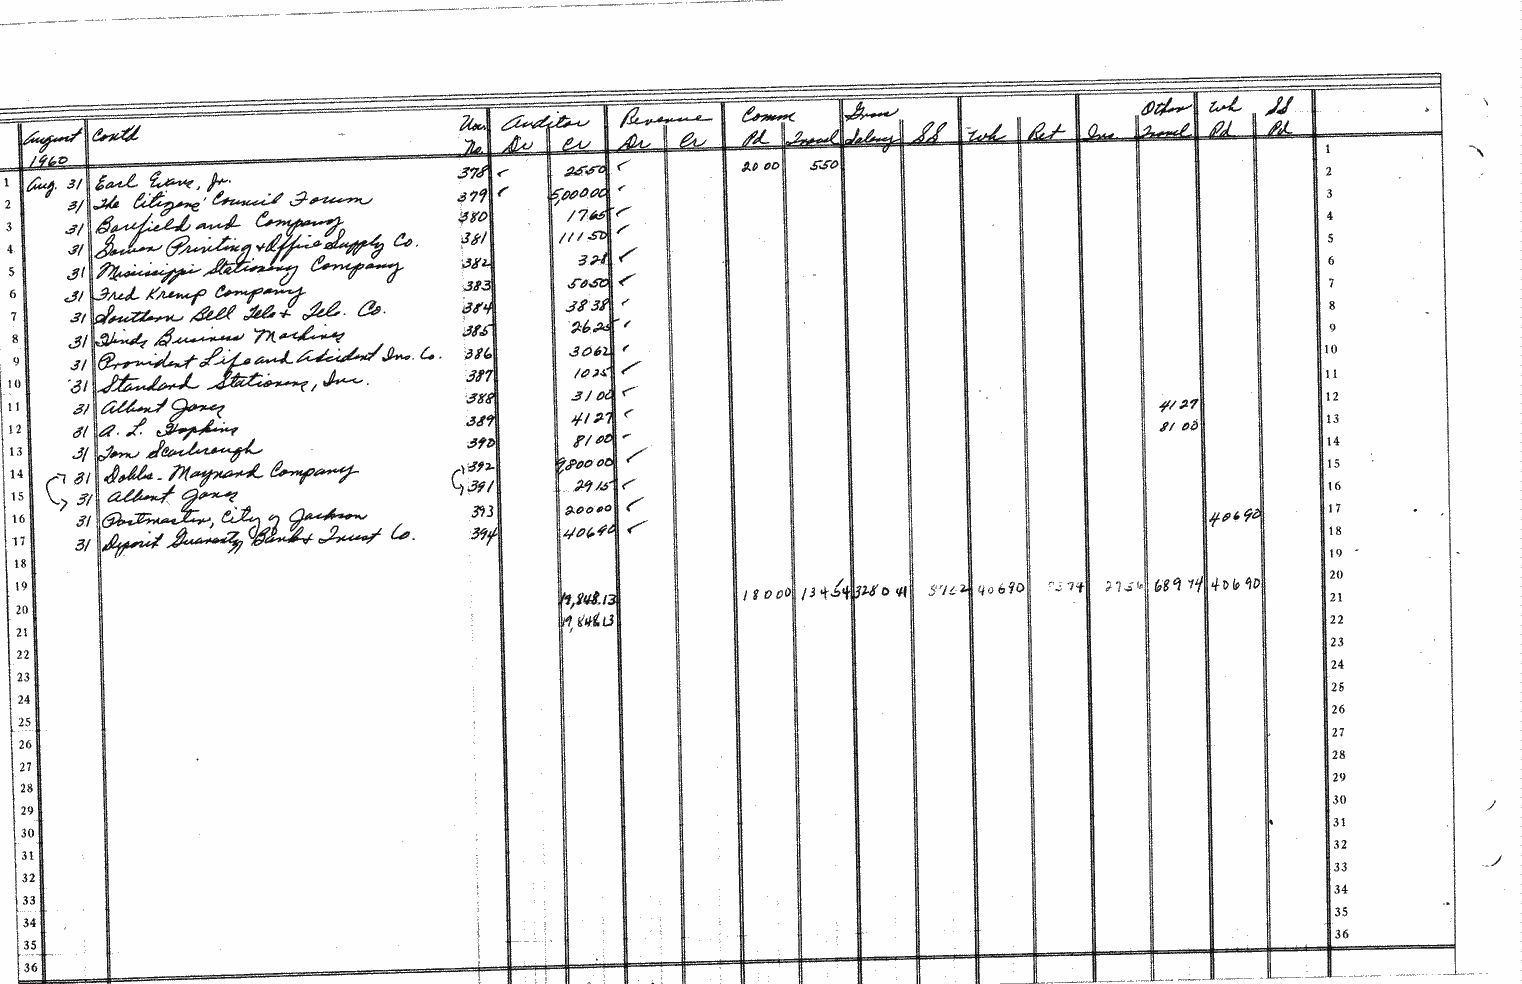 Gross Other Wh SS
August Contd Vou Auditor Revenue Comm
1960 No. Dr Cr Dr Cr Pd Travel Salary SS Wh Ret Ins Travel Pd Pd
1
1 Aug. 31 Earl Evans, Jr. 378 ✓ 25 50 ✓ 20 00 5 50 2
2 31 The Citizens' Council Forum 379 ✓ 5,000 00 ✓ 3
3 31 Barefield and Company 380 17 65 ✓ 4
4 31 Printing & Office Supply Co. 381 111 50 ✓ 5
5 31 Mississippi Stationery Company 382 3 28 ✓ 6
6 31 Fred Kremp Company 383 50 50 ✓ 7
7 31 Southern Bell Tele & Tele. Co. 384 38 38 ✓ 8
8 31 Hinds Business Machines 385 26 25 ✓ 9
9 31 Provident Life and Accident Ins. Co. 386 30 62 ✓ 10
10 31 Standard Stationery, Inc. 387 10 25 ✓ 11
11 31 Albert Jones 388 31 00 ✓ 12
12 31 A. L. Hopkins 389 41 27 ✓ 41 27 13
13 31 Tom Scarbrough 390 81 00 ✓ 81 00 14
14 31 Dobbs-Maynard Company 392 9,800 00 ✓ 15
15 31 Albert Jones 391 29 15 ✓ 16
16 31 Postmaster, City of Jackson 393 200 00 ✓ 17
17 31 Deposit Guaranty Bank & Trust Co. 394 406 90 ✓ 406 90 18
18 19
19 20
20 19,848.13 180 00 134 54 3280 41 406 90 27 56 689 74 406 90 21
21 19,848.13 22
22 23
23 24
24 25
25 26
26 27
27 28
28 29
29 30
30 31
31 32
32 33
33 34
34 35
35 36
36